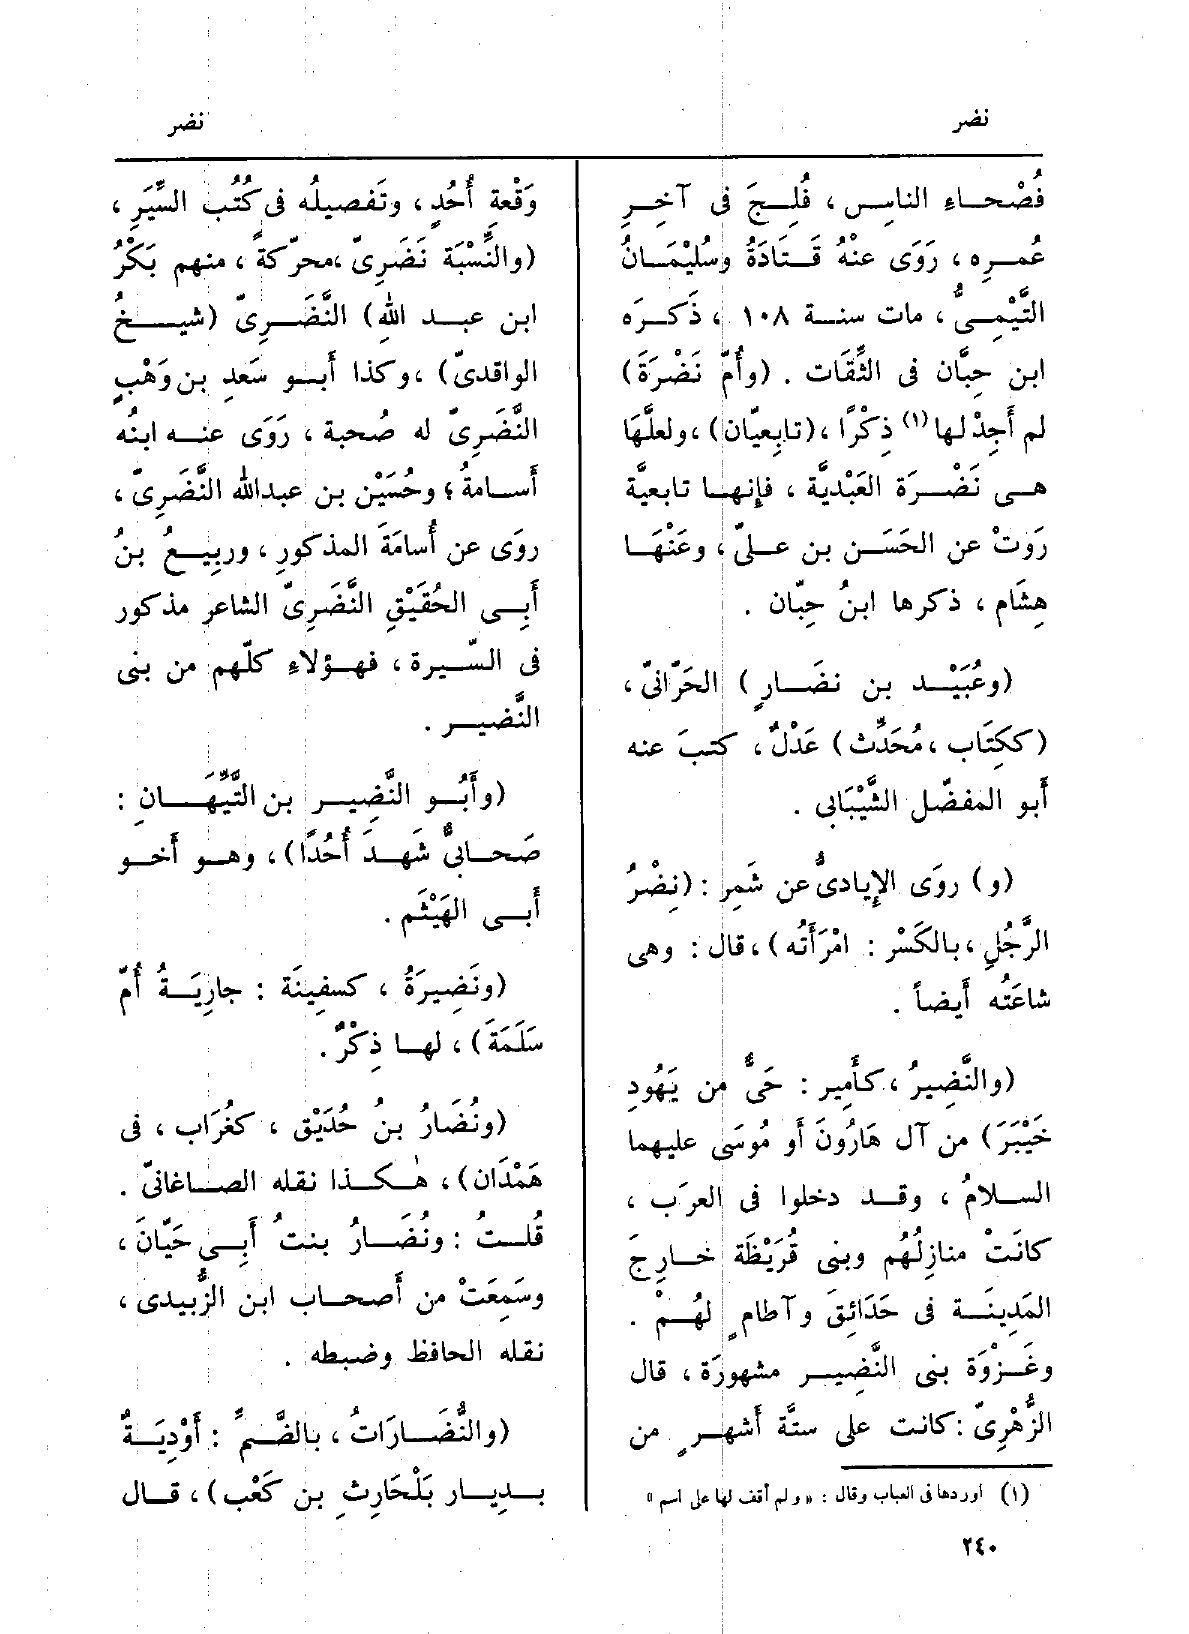 نضر
نضر
فُصْحَاءِ الناسِ ، فُلِجَ فى آخِرِ
عُمرِه ، رَوَى عنْهُ قَتَادَةُ وسُلَيْمَانُ
التَّيْمِىُّ ، مات سنة ١٠٨ ، ذَكرَه
ابن حِبَّان فى الثِّقَات . (وأُمّ نَضْرَةَ)
لم أَجِدْ لها(١) ذِكْرًا ، (تابِعِيَّان) ، ولعلَّهَا
هى نَضْرَة العَبْدِيَّة ، فإِنها تابعيّة
رَوتْ عن الحَسَن بن علىّ ، وعَنْهَا
هِشَام ، ذكرها ابنُ حِبَّان .
(وعُبَيْد بن نضَارٍ) الحَرّانىّ ،
(ككِتَاب ، مُحَدِّث) عَدْلٌ ، كتبَ عنه
أبو المفضّل الشَّيْبَانِى .
(و) روَى الإِيادىُّ عن شَمِرٍ : (نِضْرُ
الرَّجُلِ ، بالكَسْر : امْرَأَتُه) ، قال : وهى
شاعَتُه أَيضاً .
(والنَّضِيرُ ، كأَمِير : حَىٌّ من يَهُودِ
خَيْبَرَ) من آل هَارُونَ أو مُوسَى عليهما
السلامُ ، وقد دخلوا فى العرَب ،
كانَتْ منازِلُهُم وبنى قُرَيْظَة خارِجَ
المَدِينَة فى حَدَائِقَ وآطامٍ لهُمْ .
وغَزْوَة بنى النَّضِير مشهورَة ، قال
الزُّهْرِىّ : كانت على ستَّة أَشهرٍ من
(١) أوردها فى العباب وقال : « ولم أقف لها على اسم »
وَقْعةِ أُحُدٍ ، وتَفصيلُه فى كُتُب السِّيَرِ ،
(والنِّسْبَة نَضَرِىّ ، محرّكةً ، منهم بَكْرُ
ابن عبد اللهِ) النَّضَرِىّ (شيخُ
الواقدىّ) ، وكذا أَبو سَعدِ بن وَهْبٍ
النَّضَرِىّ له صُحبة ، رَوَى عنه ابنُه
أُسامةُ ؛ وحُسَيْن بن عبدالله النَّضَرِىّ ،
روَى عن أُسامَةَ المذكورِ ، وربيعُ بنُ
أَبِى الحُقَيْقِ النَّضَرِىّ الشاعر مذكور
فى السِّيرة ، فهؤلاءِ كلّهم من بنى
النَّضير .
(وأَبُو النَّضِير بن التَّيِّهَانِ :
صَحابىٌّ شَهِدَ أُحُدًا) ، وهو أَخو
أَبى الهَيْثَم .
(ونَضِيرَةُ ، كسفِينَة : جارِيَةُ أُمّ
سَلَمَةَ) ، لها ذِكْرٌ .
(ونُضَارُ بنُ حُدَيْقٍ ، كغُرَاب ، فى
هَمْدَان) ، هٰكذا نقله الصّاغانىّ .
قُلتُ : ونُضَارُ بنتُ أَبِى حَيَّانَ ،
وسَمِعَتْ من أَصحاب ابن الزُّبيدى ،
نقله الحافظ وضبطه .
(والنُّضَارَاتُ ، بالضَّمِّ : أَوْدِيَةٌ
بدِيار بَلْحَارِثِ بنِ كَعْبٍ) ، قال
٢٤٠